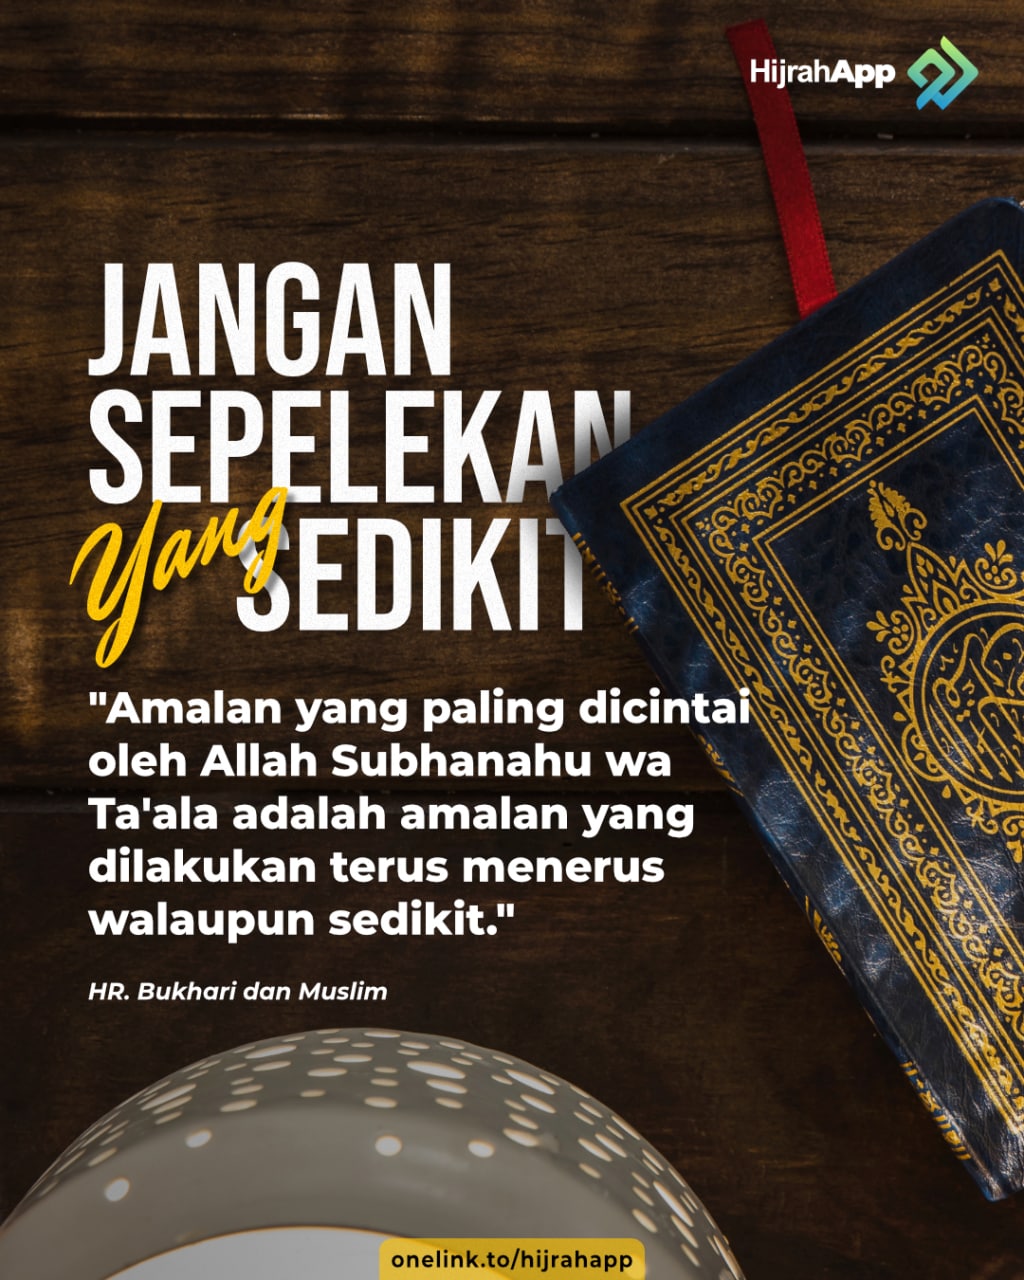 HijrahApp
JANGAN
SEPELEKAN
Yang
SEDIKIT
"Amalan yang paling dicintai
oleh Allah Subhanahu wa
Ta'ala adalah amalan yang
dilakukan terus menerus
walaupun sedikit."
HR. Bukhari dan Muslim
onelink.to/hijrahapp